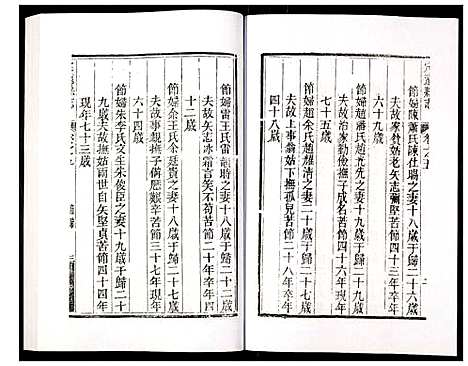 節婦陳蕭氏陳仕瑞之妻十八歲于歸二十九歲
夫故家貧姑老矢志彌堅苦節四十三年卒年
六十九歲
節婦趙潘氏趙光先之妻十八歲于歸二十九歲
夫故治家勤儉撫子成名苦節四十六年現年
七十五歲
節婦趙余氏趙耀清之妻十八歲于歸二十歲
夫故上事翁姑下撫孤兒苦節二十八年卒年
四十八歲
節婦雷王氏雷
之妻十八歲于歸二十二歲
夫故矢志冰霜言笑不苟苦節二十年卒年四
十二歲
節婦余王氏余廷貴之妻十八歲于歸二十七歲
夫故事親撫子備歷艱辛苦節三十七年現年
六十四歲
節婦朱李氏文生朱俊臣之妻十九歲于歸二十
九歲夫故撫孤兩世自矢堅貞苦節四十四年
現年七十三歲